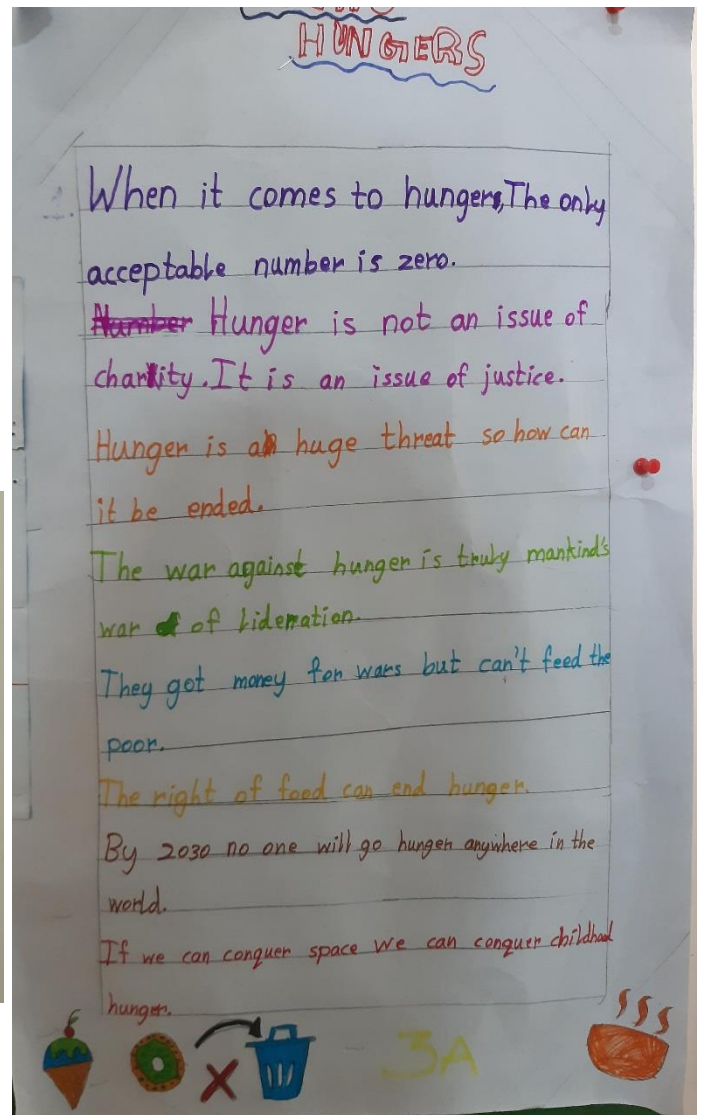 HUNGERS
1. When it comes to hungers, The only
acceptable number is zero.
Hunger is not an issue of
charity. It is an issue of justice.
Hunger is a huge threat so how can
it be ended.
The war against hunger is truly mankind's
war of lideration.
They got money for wars but can't feed the
poor.
The right of food can end hunger.
By 2030 no one will go hunger anywhere in the
world.
If we can conquer space we can conquer childhood
hunger.
3A